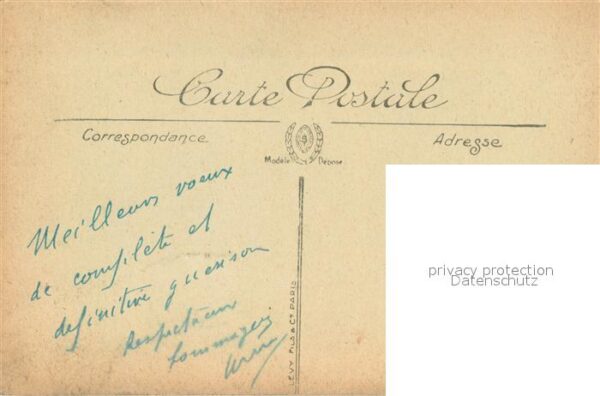 Carte Postale
Correspondance
Adresse
Modèle Déposé
Meilleurs voeux
de complète et
definitive guerison
Respectueux
hommages
LEVY FILS & Cie PARIS
privacy protection
Datenschutz